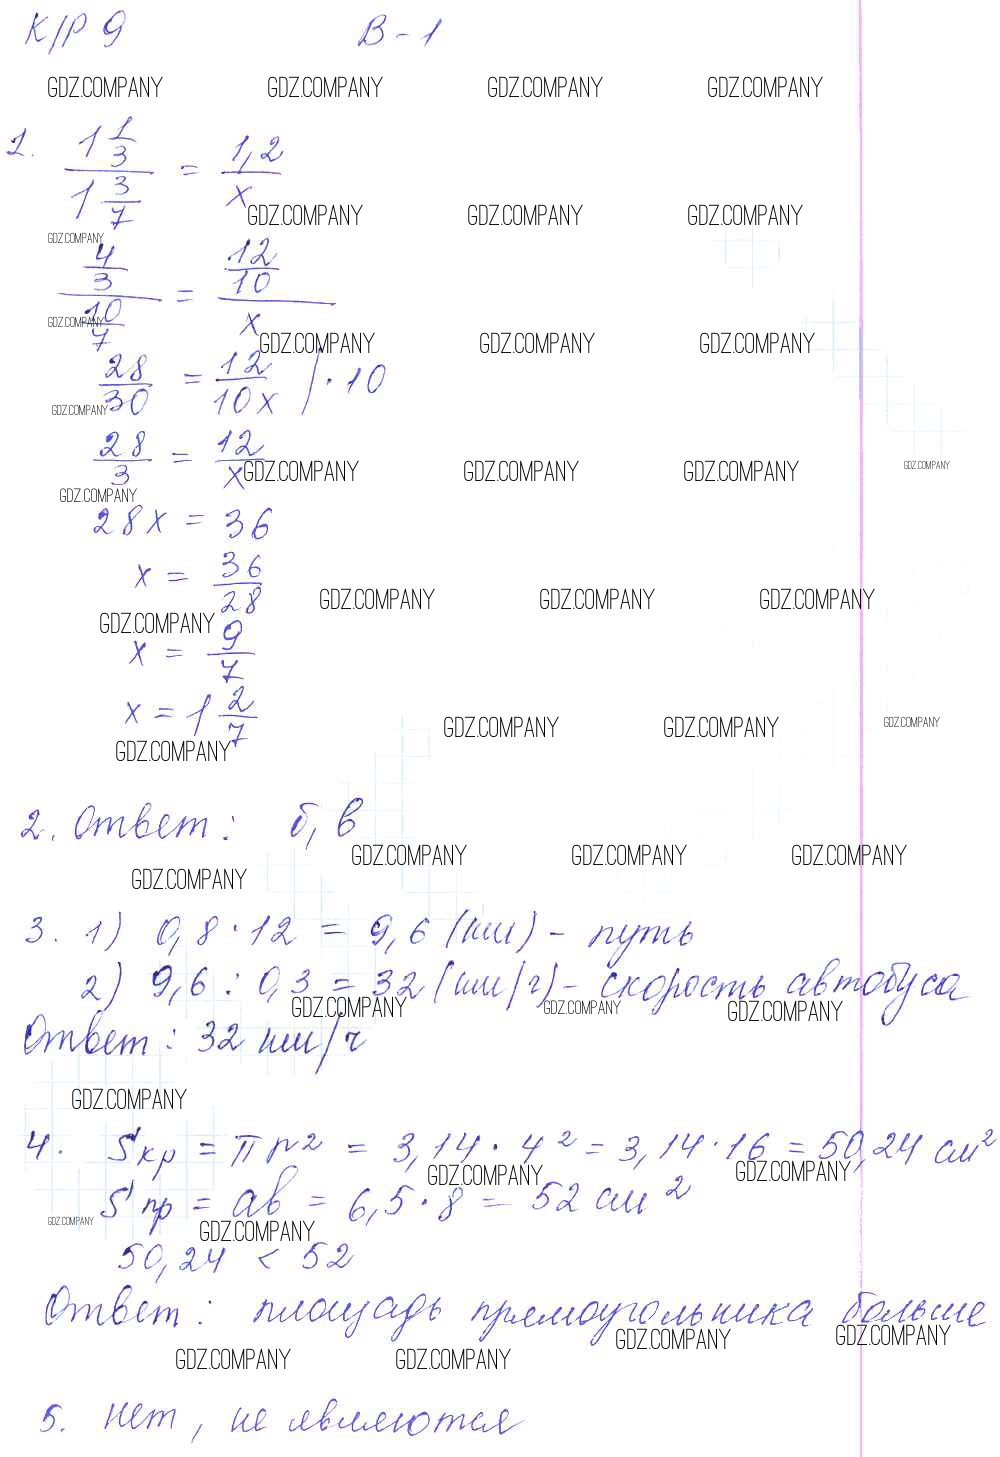 К/Р 9 В-1
GDZ.COMPANY GDZ.COMPANY GDZ.COMPANY GDZ.COMPANY
1. 1 1/3 / 1 3/7 = 1,2 / x
GDZ.COMPANY GDZ.COMPANY GDZ.COMPANY
GDZ.COMPANY
4/3 / 10/7 = 12/10 / x
GDZ.COMPANY
GDZ.COMPANY GDZ.COMPANY GDZ.COMPANY
28/30 = 12/10x | · 10
GDZ.COMPANY
28/3 = 12/x
GDZ.COMPANY GDZ.COMPANY GDZ.COMPANY GDZ.COMPANY
GDZ.COMPANY
28x = 36
x = 36/28
GDZ.COMPANY GDZ.COMPANY GDZ.COMPANY
GDZ.COMPANY
x = 9/7
x = 1 2/7
GDZ.COMPANY GDZ.COMPANY GDZ.COMPANY
GDZ.COMPANY
2. Ответ: б, в
GDZ.COMPANY GDZ.COMPANY GDZ.COMPANY
GDZ.COMPANY
3. 1) 0,8 · 12 = 9,6 (км) - путь
2) 9,6 : 0,3 = 32 (км/ч) - скорость автобуса
GDZ.COMPANY GDZ.COMPANY GDZ.COMPANY
Ответ: 32 км/ч
GDZ.COMPANY
4. Sкр = πr² = 3,14 · 4² = 3,14 · 16 = 50,24 см²
GDZ.COMPANY GDZ.COMPANY
Sпр = ав = 6,5 · 8 = 52 см²
GDZ.COMPANY GDZ.COMPANY
50,24 < 52
Ответ: площадь прямоугольника больше
GDZ.COMPANY GDZ.COMPANY
GDZ.COMPANY GDZ.COMPANY
5. Нет, не являются